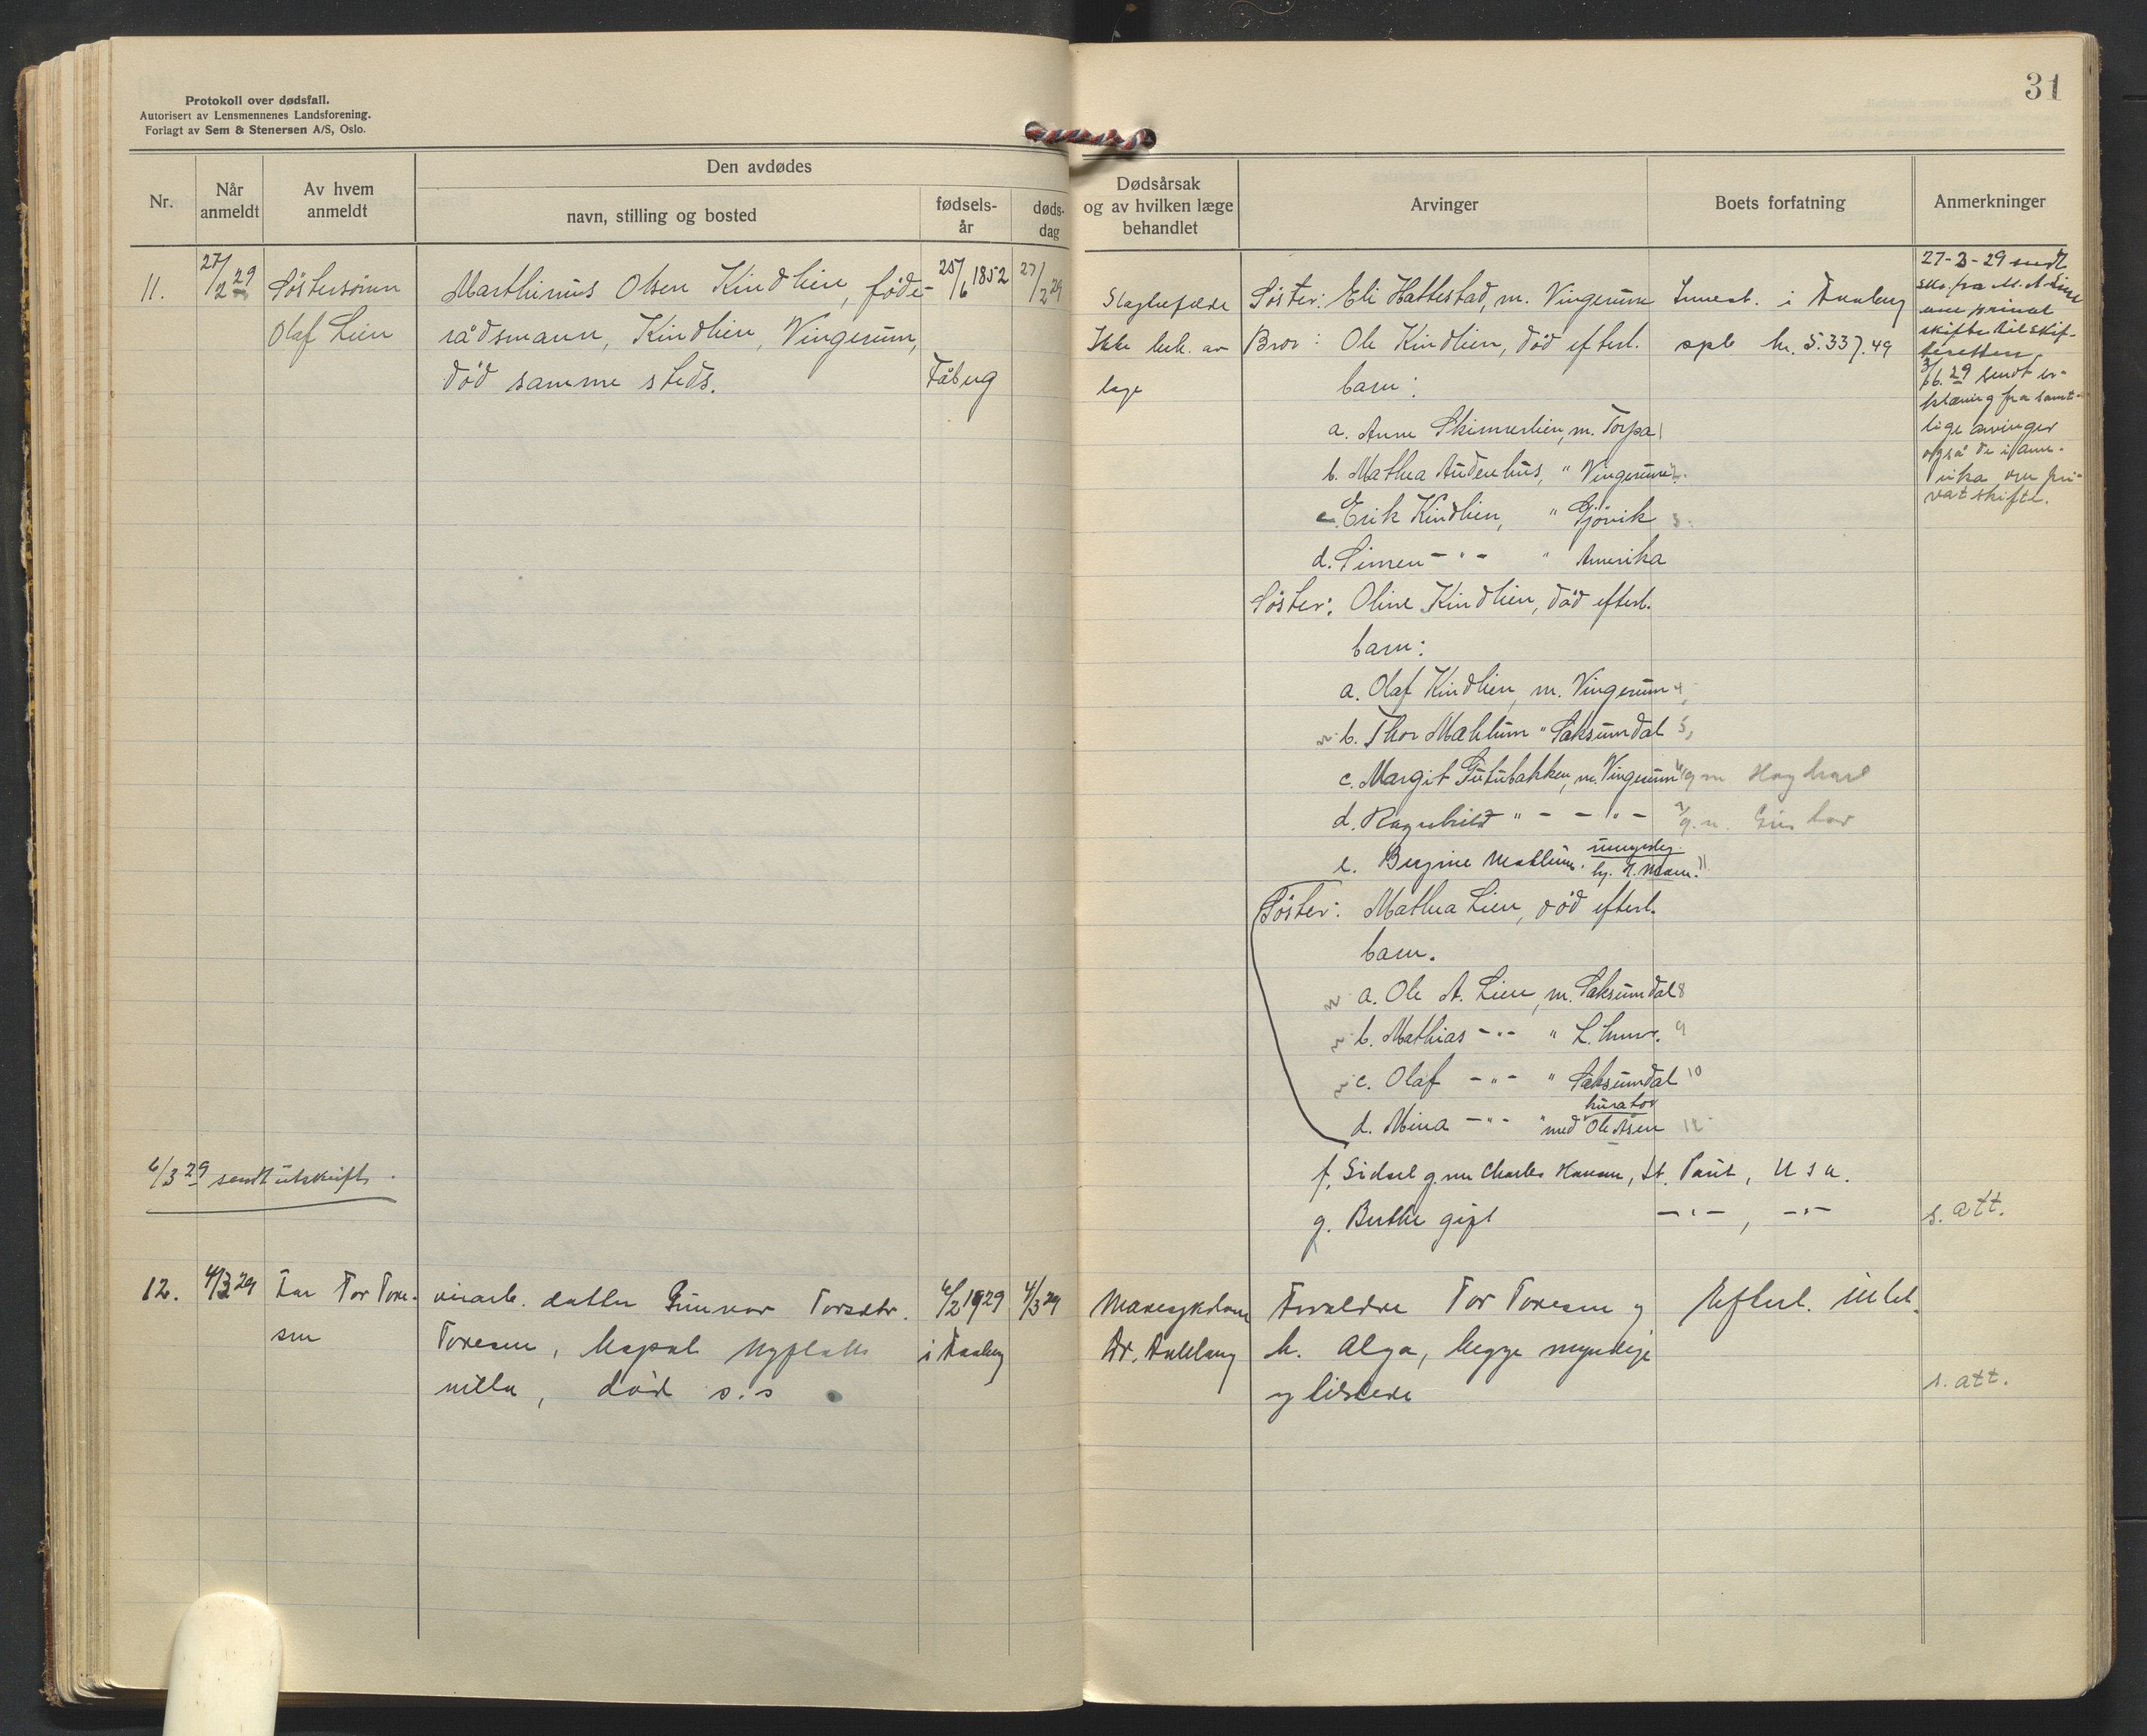 31
Protokoll over dødsfall.
Autorisert av Lensmennenes Landsforening.
Forlagt av Sem & Stenersen A/S, Oslo.
Nr.
Når anmeldt
Av hvem anmeldt
Den avdødes
navn, stilling og bosted
fødsels-år
døds-dag
Dødsårsak og av hvilken læge behandlet
Arvinger
Boets forfatning
Anmerkninger
11.
27/2 29
Söstersönn
Olaf Lien
Marthinus Olsen Kindlien, föde-
rådsmann, Kindlien, Vingerum,
död samme steds.
25/6 1852
Fåberg
27/2 29
Slagtilfælde
Ikke beh. av
læge
Söster: Eli Hattestad, m. Vingerum
Bror: Ole Kindlien, död efterl.
barn:
a. Anne Skinnerlien, m. Torpa 1
b. Mathea Audenhus, " Vingerum 2.
c. Erik Kindlien, " Gjövik 3.
d. Simen - " - " Amerika
Söster: Oline Kindlien, död efterl.
barn:
a. Olaf Kindlien, m. Vingerum 4,
b. Thor Mæhlum " Saksumdal 5,
c. Margit Tutubakken, m. Vingerum 6 g m
d. Ragnhild " - - " - 7 g. m.
e. Bergine Mæhlum. umyndig.
11
Söster: Mathea Lien, död efterl.
barn.
a. Ole A. Lien, m. Saksumdal 8
b. Mathias - " - " L.hmr. 9
c. Olaf - " - " Saksumdal 10
d. Mina - " - " med kurator Ole Åsen 12
f. Sidsel g. m Charles Hansen, St. Paul, U S A.
g. Berthe gift - " - , - " -
Innest. i Faaberg
spb kr. 5.337.49
27-3-29 sendt
skr. fra M. A. Lien
om privat
skifte til skif-
teretten.
3/6. 29 sendt er-
klæring fra samt-
lige arvinger
også de i Ame-
rika om pri-
vat skifte.
s. att.
6/3 29 sendt utskrift.
12.
4/3 29
Far Tor Tore-
sen
viarb. datter Gunvor Torsdtr.
Toresen,
villa, död s.s
4/2 1929
i Faaberg
4/3 29
Mavesykdom
Dr.
Foreldre Tor Toresen og
h. Alga, begge myndige
og tilstede
Efterl. intet.
s. att.